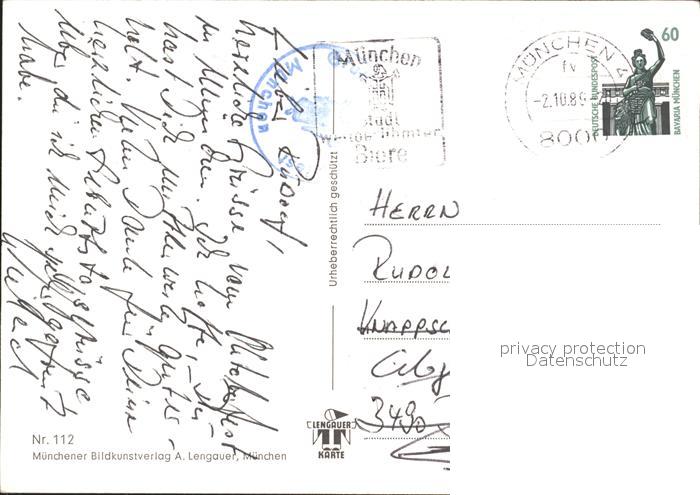 Lieber Rudolf,
herzliche Grüsse vom Oktoberfest
in München. Ich hoffe, Du
hast Dich mittlerweile gut er-
holt. Vielen Dank für Deine
herzlichen Geburtstagsgrüsse
über die ich mich sehr gefreut
habe.
Urheberrechtlich geschützt
Nr. 112
Münchener Bildkunstverlag A. Lengauer, München
LENGAUER
KARTE
München
München
Stadt
weltberühmter
Biere
MÜNCHEN
-2.10.89
8000
60
DEUTSCHE BUNDESPOST
BAVARIA MÜNCHEN
HERRN
RUDOL
KNAPPSC
3490
privacy protection
Datenschutz